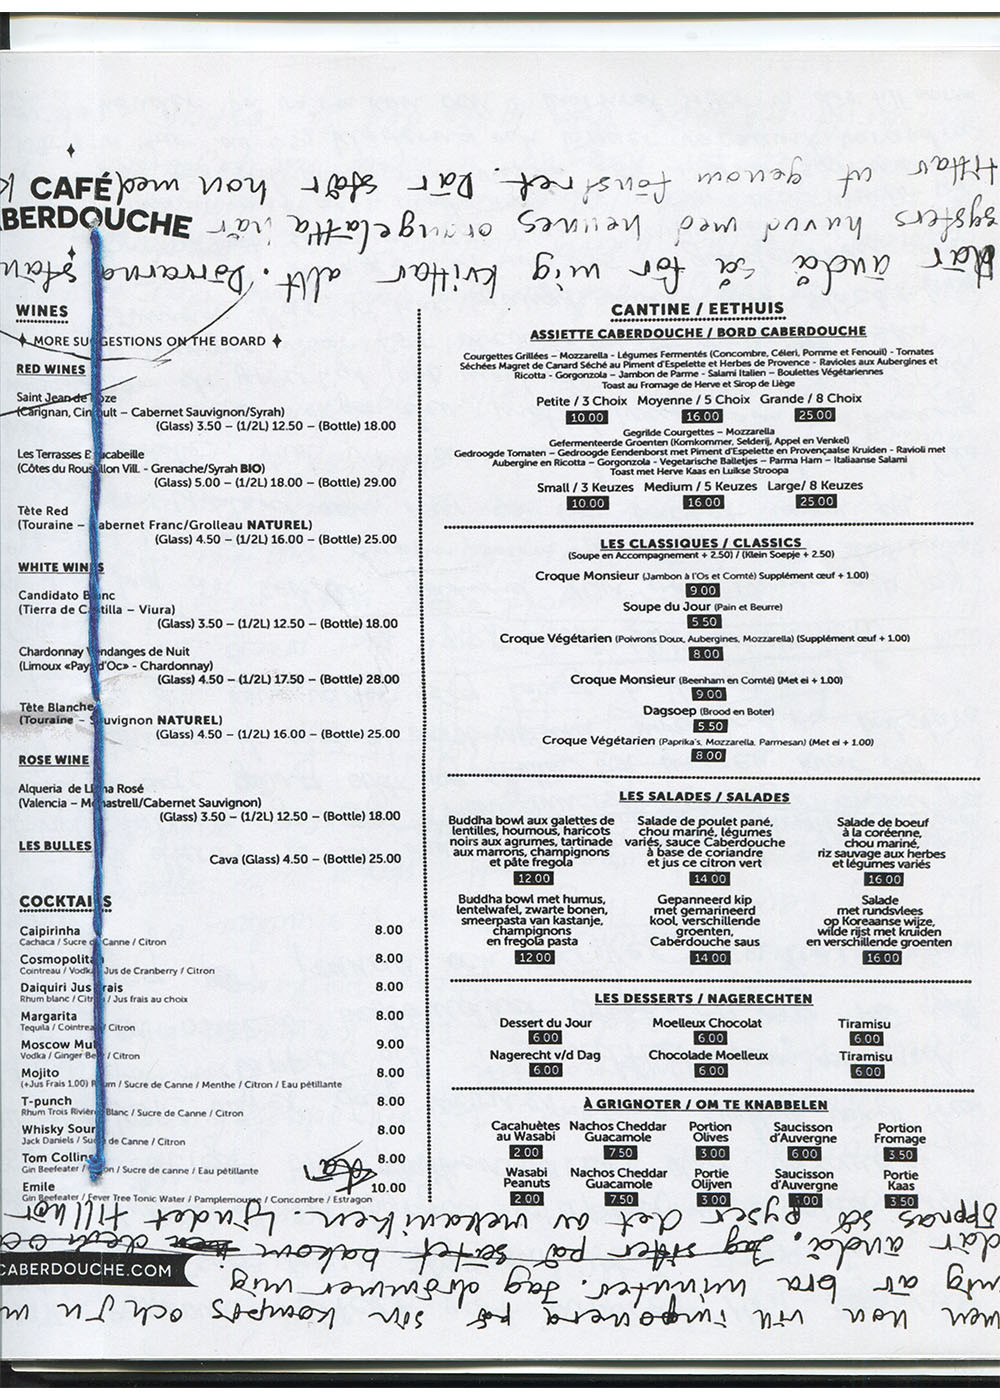 CAFÉ
ABERDOUCHE
WINES
MORE SUGGESTIONS ON THE BOARD
RED WINES
Saint Jean de oze
(Carignan, Cin ult – Cabernet Sauvignon/Syrah)
(Glass) 3.50 – (1/2L) 12.50 – (Bottle) 18.00
Les Terrasses E cabeille
(Côtes du Roussillon Vill. - Grenache/Syrah BIO)
(Glass) 5.00 – (1/2L) 18.00 – (Bottle) 29.00
Tète Red
(Touraine – Cabernet Franc/Grolleau NATUREL)
(Glass) 4.50 – (1/2L) 16.00 – (Bottle) 25.00
WHITE WINES
Candidato Blanc
(Tierra de Castilla – Viura)
(Glass) 3.50 – (1/2L) 12.50 – (Bottle) 18.00
Chardonnay Vendanges de Nuit
(Limoux «Pays d'Oc» - Chardonnay)
(Glass) 4.50 – (1/2L) 17.50 – (Bottle) 28.00
Tète Blanche
(Touraine – Sauvignon NATUREL)
(Glass) 4.50 – (1/2L) 16.00 – (Bottle) 25.00
ROSE WINE
Alqueria de Llena Rosé
(Valencia – Monastrell/Cabernet Sauvignon)
(Glass) 3.50 – (1/2L) 12.50 – (Bottle) 18.00
LES BULLES
Cava (Glass) 4.50 – (Bottle) 25.00
COCKTAILS
Caipirinha 8.00
Cachaca / Sucre de Canne / Citron
Cosmopolitan 8.00
Cointreau / Vodka / Jus de Cranberry / Citron
Daiquiri Jus Frais 8.00
Rhum blanc / Citron / Jus frais au choix
Margarita 8.00
Tequila / Cointreau / Citron
Moscow Mule 9.00
Vodka / Ginger Beer / Citron
Mojito 8.00
(+Jus Frais 1.00) Rhum / Sucre de Canne / Menthe / Citron / Eau pétillante
T-punch 8.00
Rhum Trois Rivières Blanc / Sucre de Canne / Citron
Whisky Sour 8.00
Jack Daniels / Sucre de Canne / Citron
Tom Collins 8.00
Gin Beefeater / Citron / Sucre de canne / Eau pétillante
Emile 10.00
Gin Beefeater / Fever Tree Tonic Water / Pamplemousse / Concombre / Estragon
CABERDOUCHE.COM
CANTINE / EETHUIS
ASSIETTE CABERDOUCHE / BORD CABERDOUCHE
Courgettes Grillées – Mozzarella - Légumes Fermentés (Concombre, Céleri, Pomme et Fenouil) - Tomates
Séchées Magret de Canard Séché au Piment d'Espelette et Herbes de Provence - Ravioles aux Aubergines et
Ricotta - Gorgonzola – Jambon de Parme - Salami Italien – Boulettes Végétariennes
Toast au Fromage de Herve et Sirop de Liège
Petite / 3 Choix Moyenne / 5 Choix Grande / 8 Choix
10.00 16.00 25.00
Gegrilde Courgettes – Mozzarella
Gefermenteerde Groenten (Komkommer, Selderij, Appel en Venkel)
Gedroogde Tomaten – Gedroogde Eendenborst met Piment d'Espelette en Provençaalse Kruiden - Ravioli met
Aubergine en Ricotta – Gorgonzola - Vegetarische Balletjes – Parma Ham – Italiaanse Salami
Toast met Herve Kaas en Luikse Stroopa
Small / 3 Keuzes Medium / 5 Keuzes Large/ 8 Keuzes
10.00 16.00 25.00
LES CLASSIQUES / CLASSICS
(Soupe en Accompagnement + 2.50) / (Klein Soepje + 2.50)
Croque Monsieur (Jambon à l'Os et Comté) Supplément œuf + 1.00)
9.00
Soupe du Jour (Pain et Beurre)
5.50
Croque Végétarien (Poivrons Doux, Aubergines, Mozzarella) (Supplément œuf + 1.00)
8.00
Croque Monsieur (Beenham en Comté) (Met ei + 1.00)
9.00
Dagsoep (Brood en Boter)
5.50
Croque Végétarien (Paprika's, Mozzarella, Parmesan) (Met ei + 1.00)
8.00
LES SALADES / SALADES
Buddha bowl aux galettes de
lentilles, houmous, haricots
noirs aux agrumes, tartinade
aux marrons, champignons
et pâte fregola
12.00
Salade de poulet pané,
chou mariné, légumes
variés, sauce Caberdouche
à base de coriandre
et jus ce citron vert
14.00
Salade de boeuf
à la coréenne,
chou mariné,
riz sauvage aux herbes
et légumes variés
16.00
Buddha bowl met humus,
lentelwafel, zwarte bonen,
smeerpasta van kastanje,
champignons
en fregola pasta
12.00
Gepanneerd kip
met gemarineerd
kool, verschillende
groenten,
Caberdouche saus
14.00
Salade
met rundsvlees
op Koreaanse wijze,
wilde rijst met kruiden
en verschillende groenten
16.00
LES DESSERTS / NAGERECHTEN
Dessert du Jour Moelleux Chocolat Tiramisu
6.00 6.00 6.00
Nagerecht v/d Dag Chocolade Moelleux Tiramisu
6.00 6.00 6.00
À GRIGNOTER / OM TE KNABBELEN
Cacahuètes au Wasabi
2.00
Nachos Cheddar Guacamole
7.50
Portion Olives
3.00
Saucisson d'Auvergne
6.00
Portion Fromage
3.50
Wasabi Peanuts
2.00
Nachos Cheddar Guacamole
7.50
Portie Olijven
3.00
Saucisson d'Auvergne
.00
Portie Kaas
3.50
men hon vill imponera på son kompis och
mig är bra minuter. Jag drömmer mig
där ändå. Jag sitter på sätet bakom dem
öppnas så pyser det av mekaniken. Ljudet tillhör
där ändå så för mig kvittar allt. Dörrarna stän
systers huvud med hennes orangelätta hår
tittar ut genom fönstret. Där står hon med k